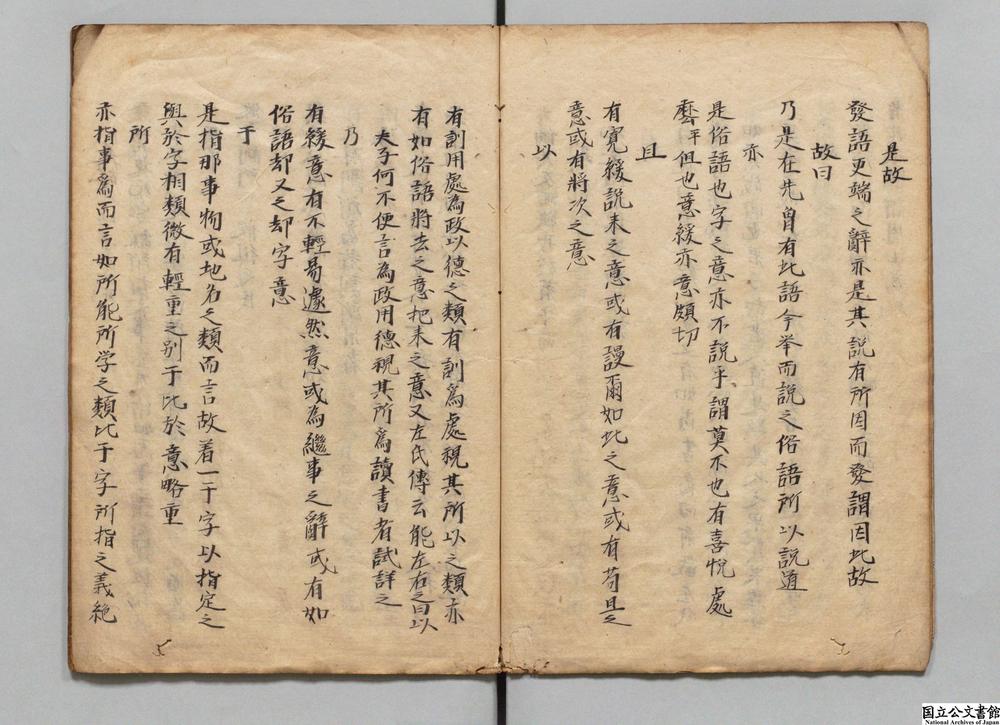 是故
發語更端之辭亦是其說有所因而發謂因此故
故曰
乃是在先曾有此語今举而說之俗語所以說道
亦
是俗語也字之意亦不說乎謂莫不也有喜悅處
麽平但也意緩亦意頗切
且
有寬緩說来之意或有謾爾如此之意或有苟且之
意或有將次之意
以
有訓用處為政以德之類有訓為處視其所以之類亦
有如俗語將去之意把来之意又左氏傳云能左右之曰以
夫子何不便言為政用德視其所為讀書者試詳之
乃
有緩意有不輕易遽然意或為繼事之辭或有如
俗語却又之却字意
于
是指那事物或地名之類而言故着一于字以指定之
與於字相類微有輕重之别于比於意略重
所
亦指事為而言如所能所学之類比于字所指之義絶
国立公文書館
National Archives of Japan